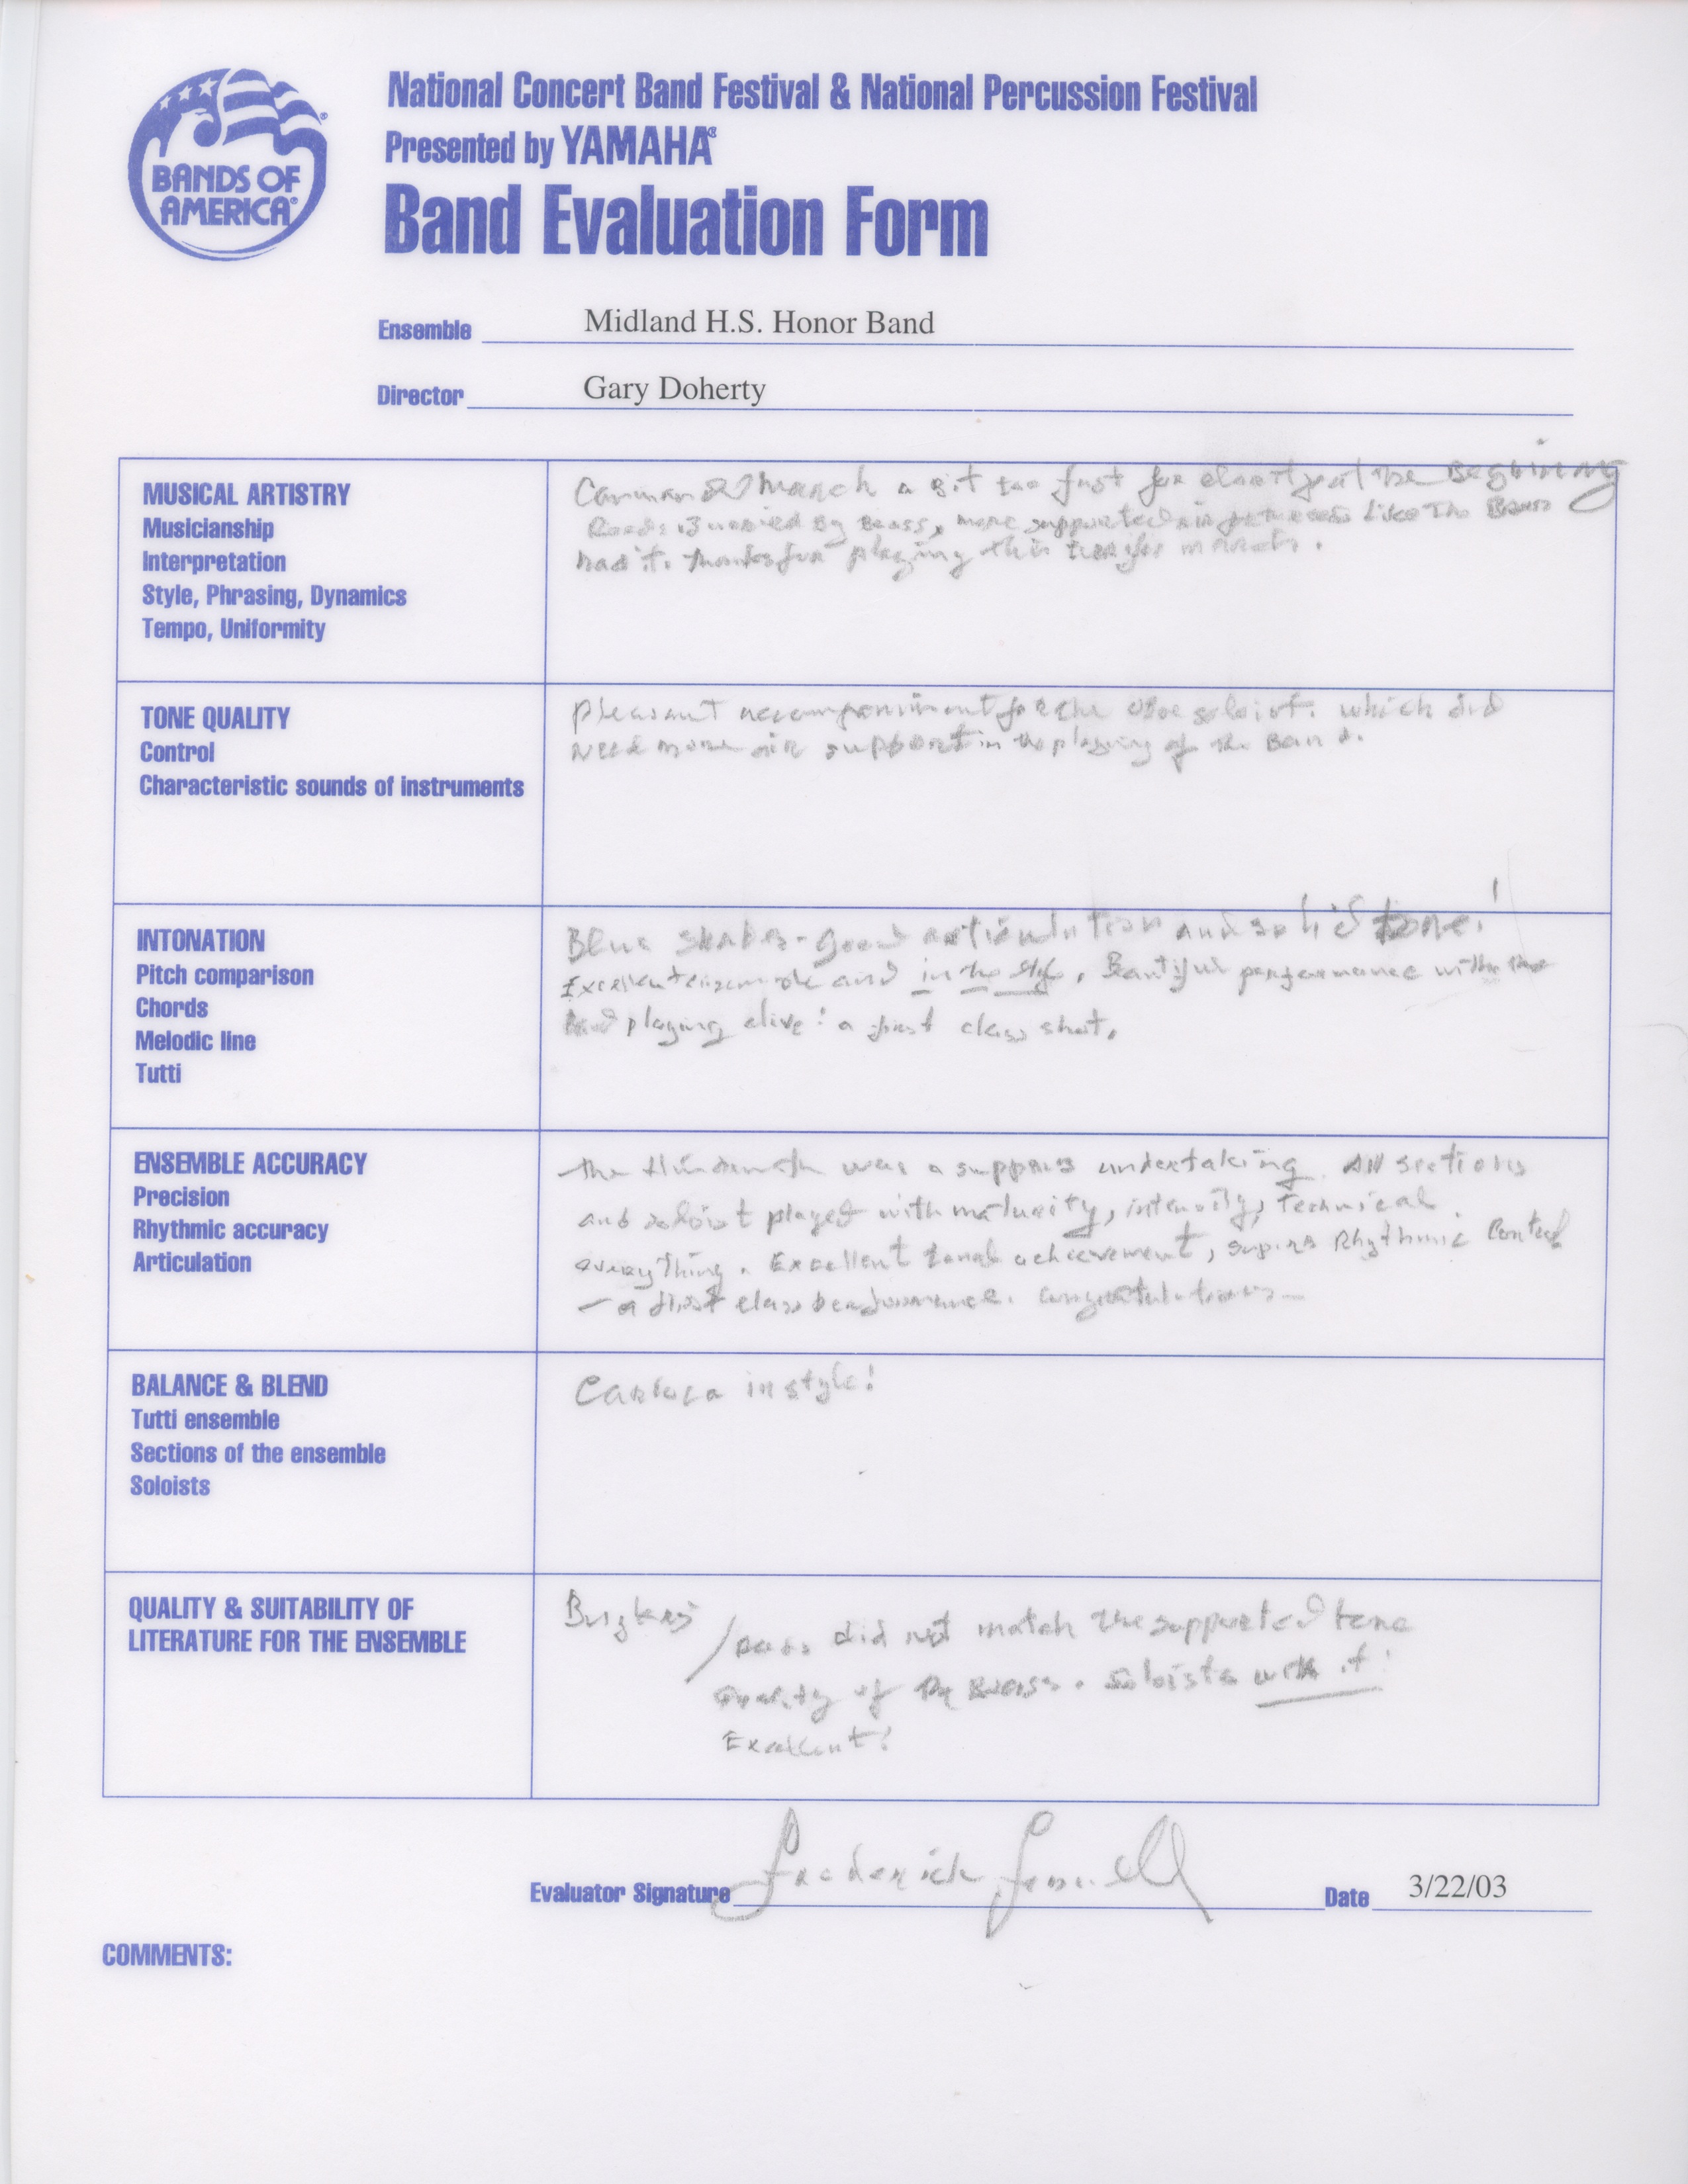 BANDS OF
AMERICA®
National Concert Band Festival & National Percussion Festival
Presented by YAMAHA®
Band Evaluation Form
Ensemble Midland H.S. Honor Band
Director Gary Doherty
MUSICAL ARTISTRY
Musicianship
Interpretation
Style, Phrasing, Dynamics
Tempo, Uniformity
March a bit too fast for clarity at the Beginning
Reeds Buried By Brass, more supported air Like The Brass
had it. thanks for playing this march.
TONE QUALITY
Control
Characteristic sounds of instruments
Pleasant accompaniment for the oboe soloist. which did
Need more air support in the playing of the Band.
INTONATION
Pitch comparison
Chords
Melodic line
Tutti
Blue Shades - good articulation and solid tone!
Excellent ensemble and in the style. Beautiful performance with the
Band playing alive! a first class shot.
ENSEMBLE ACCURACY
Precision
Rhythmic accuracy
Articulation
the Hindemith was a undertaking. All sections
and soloist played with maturity, intensity, Technical
everything. Excellent tonal achievement, Rhythmic Control
- a first class performance. congratulations -
BALANCE & BLEND
Tutti ensemble
Sections of the ensemble
Soloists
Carioca in style!
QUALITY & SUITABILITY OF
LITERATURE FOR THE ENSEMBLE
did not match the supported tone
quality of the Brass. Soloists with it!
Excellent!
Evaluator Signature Frederick Fennell Date 3/22/03
COMMENTS: